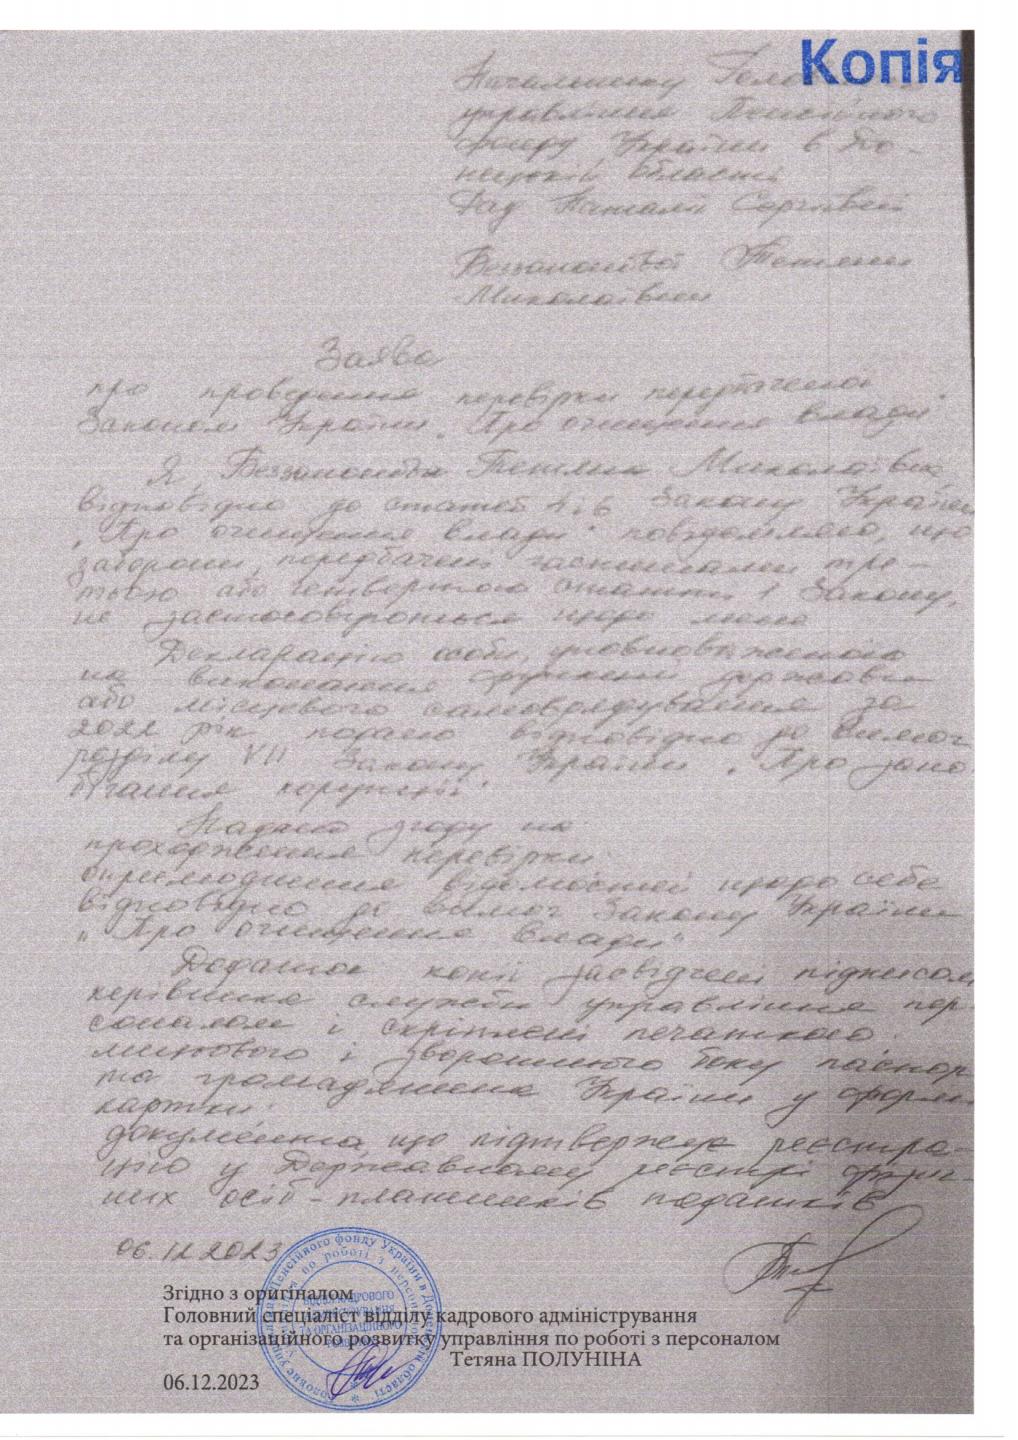 Копія
Начальнику Головного
управління Пенсійного
фонду України в До-
нецькій області
Рад Наталії Сергіївні
Тетяни
Миколаївни
Заява
про проведення перевірки, передбаченої
Законом України „Про очищення влади"
Я, Тетяна Миколаївна,
відповідно до статей 4 і 6 Закону України
„Про очищення влади" повідомляю, що
заборони, передбачені частинами тре-
тьою або четвертою статті 1 Закону,
не застосовуються щодо мене
Декларацію особи, уповноваженої
на виконання функцій держави
або місцевого самоврядування за
2022 рік подано відповідно до вимог
розділу VII Закону України „Про запо-
бігання корупції".
Надаю згоду на:
проходження перевірки;
оприлюднення відомостей щодо себе
відповідно до вимог Закону України
„Про очищення влади"
Додаток: копії засвідчені підписом
керівника служби управління пер-
соналом і скріплені печаткою:
лицьового і зворотнього боку паспор-
та громадянина України у формі
картки;
документа, що підтверджує реєстра-
цію у Державному реєстрі фізич-
них осіб - платників податків
06.12.2023
Згідно з оригіналом
Головний спеціаліст відділу кадрового адміністрування
та організаційного розвитку управління по роботі з персоналом
Тетяна ПОЛУНІНА
06.12.2023